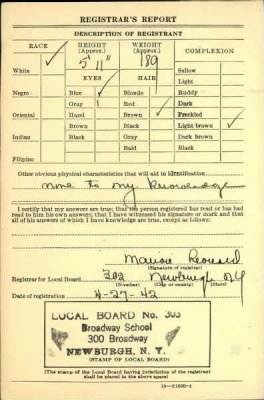 REGISTRAR'S REPORT
DESCRIPTION OF REGISTRANT
RACE HEIGHT (Approx.) WEIGHT (Approx.) COMPLEXION
5' 11" 189
White Sallow
EYES HAIR Light
Negro Blue Blonde Ruddy
Gray Red Dark
Oriental Hazel Brown Freckled
Brown Black Light brown
Indian Black Gray Dark brown
Bald Black
Filipino
Other obvious physical characteristics that will aid in identification
none to my knowledge
I certify that my answers are true; that the person registered has read or has had
read to him his own answers; that I have witnessed his signature or mark and that
all of his answers of which I have knowledge are true, except as follows:
(Signature of registrar)
Registrar for Local Board 302 Newburgh NY
(Number) (City or county) (State)
Date of registration 4-27-42
LOCAL BOARD No. 303
Broadway School
300 Broadway
NEWBURGH, N. Y.
(STAMP OF LOCAL BOARD)
(The stamp of the Local Board having jurisdiction of the registrant
shall be placed in the above space)